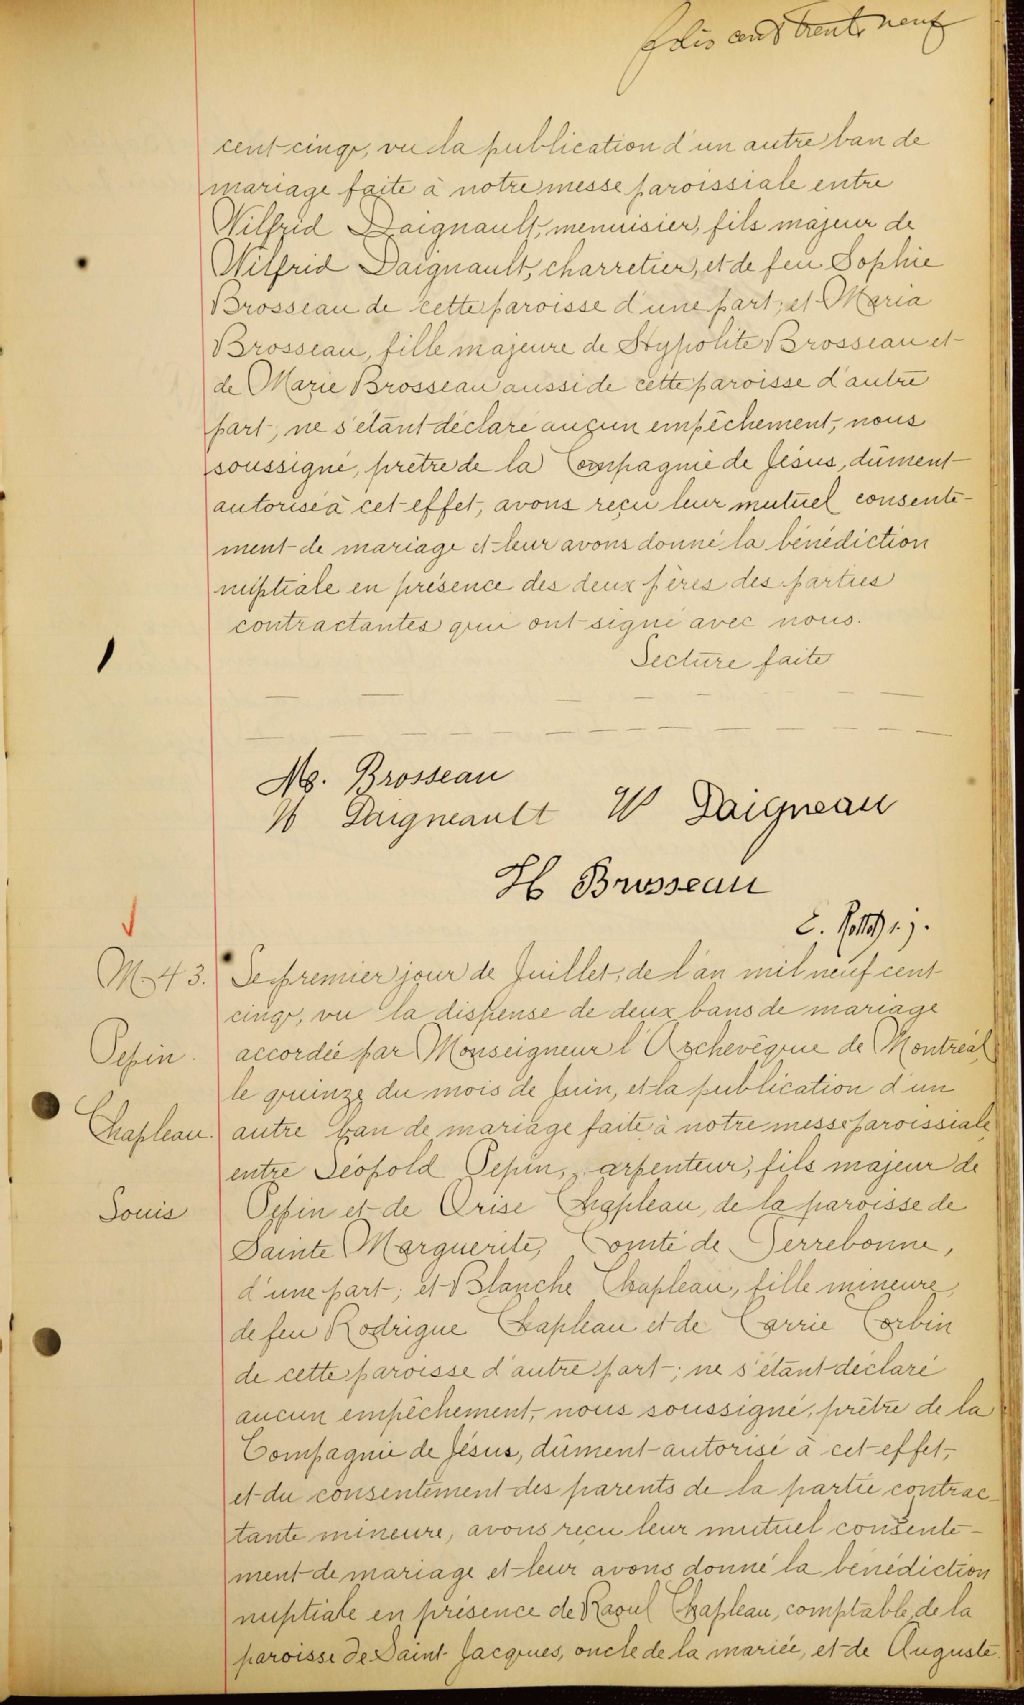 folio cent trente neuf
cent cinq, vu la publication d'un autre ban de
mariage faite à notre messe paroissiale entre
Wilfrid Daignault, menuisier, fils majeur de
Wilfrid Daignault, charretier, et de feu Sophie
Brosseau de cette paroisse d'une part; et Maria
Brosseau, fille majeure de Hypolite Brosseau et
de Marie Brosseau aussi de cette paroisse d'autre
part; ne s'étant déclaré aucun empêchement, nous
soussigné, prêtre de la Compagnie de Jésus, dûment
autorisé à cet effet, avons reçu leur mutuel consente-
ment de mariage et leur avons donné la bénédiction
nuptiale en présence des deux pères des parties
contractantes qui ont signé avec nous.
Lecture faite
M. Brosseau
W Daigneault W Daigneau
H Brosseau
E. s. j.
M 43. Le premier jour de Juillet, de l'an mil neuf cent
cinq, vu la dispense de deux bans de mariage
Pepin. accordée par Monseigneur l'Archevêque de Montréal,
le quinze du mois de Juin, et la publication d'un
Chapleau. autre ban de mariage faite à notre messe paroissiale
entre Léopold Pepin, arpenteur, fils majeur de
Louis Pepin et de Orise Chapleau, de la paroisse de
Sainte Marguerite, Comté de Terrebonne,
d'une part; et Blanche Chapleau, fille mineure,
de feu Rodrigue Chapleau et de Carrie Corbin
de cette paroisse d'autre part; ne s'étant déclaré
aucun empêchement, nous soussigné, prêtre de la
Compagnie de Jésus, dûment autorisé à cet effet,
et du consentement des parents de la partie contrac-
tante mineure, avons reçu leur mutuel consente-
ment de mariage et leur avons donné la bénédiction
nuptiale en présence de Raoul Chapleau, comptable, de la
paroisse de Saint Jacques, oncle de la mariée, et de Auguste